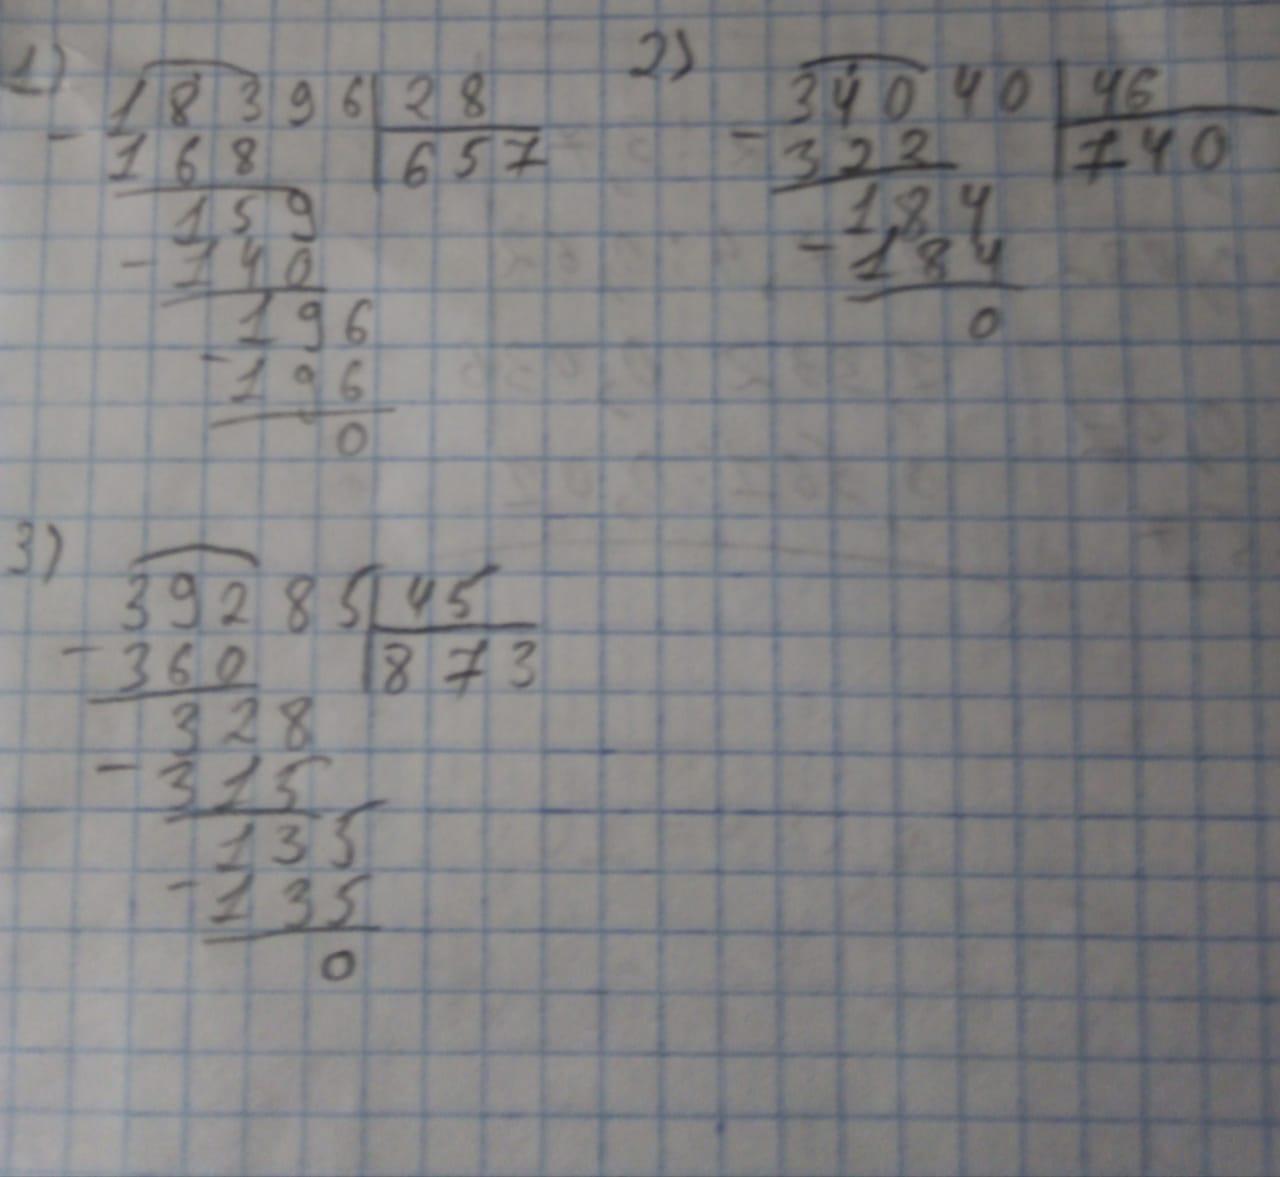 1)
18396 | 28
- 168 | 657
159
- 140
196
- 196
0
2)
34040 | 46
- 322 | 740
184
- 184
0
3)
39285 | 45
- 360 | 873
328
- 315
135
- 135
0